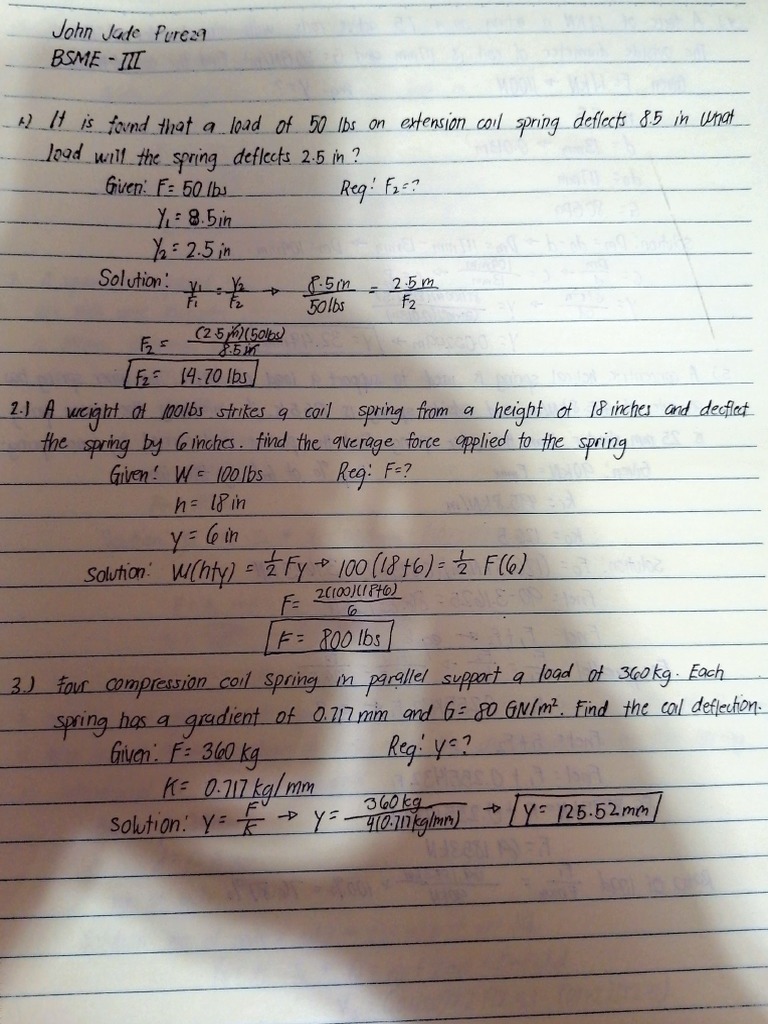 John Jade Pureza
BSME - III
1.) It is found that a load of 50 lbs on extension coil spring deflects 8.5 in what
load will the spring deflects 2.5 in?
Given: F = 50 lbs Req: F2 = ?
Y1 = 8.5 in
Y2 = 2.5 in
Solution: y1/F1 = y2/F2 → 8.5 in/50 lbs = 2.5 in/F2
F2 = (2.5 in)(50 lbs)/8.5 in
F2 = 14.70 lbs
2.) A weight of 100 lbs strikes a coil spring from a height of 18 inches and deeflect
the spring by 6 inches. find the average force applied to the spring
Given: W = 100 lbs Req: F = ?
h = 18 in
y = 6 in
Solution: W(h+y) = 1/2 Fy → 100 (18+6) = 1/2 F(6)
F = 2(100)(18+6)/6
F = 800 lbs
3.) four compression coil spring in parallel support a load of 360 kg. Each
spring has a gradient of 0.717 mm and G = 80 GN/m². Find the coil deflection.
Given: F = 360 kg Req: y = ?
K = 0.717 kg/mm
Solution: y = F/K → y = 360 kg/4(0.717 kg/mm) → y = 125.52 mm